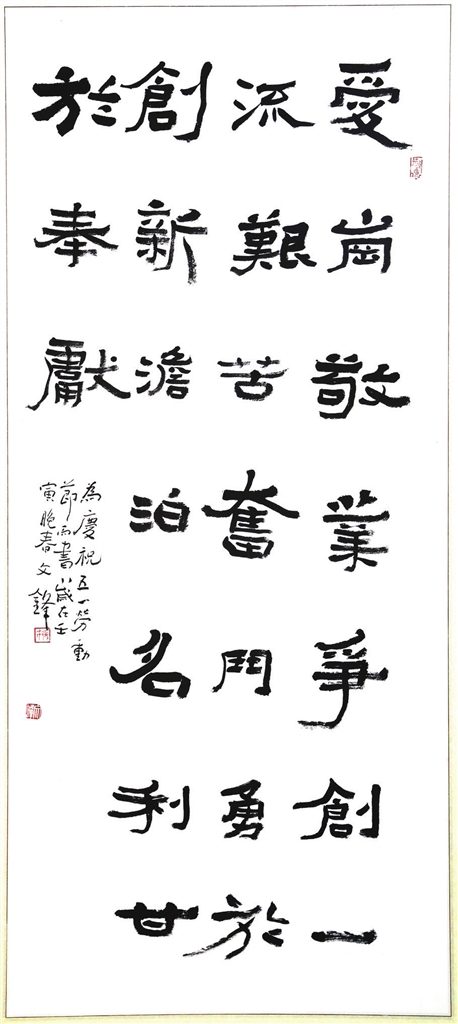 愛崗敬業爭創一
流艱苦奮鬥勇於
創新澹泊名利甘
於奉獻
為慶祝五一勞動
節而書歲在壬
寅晚春文鋒